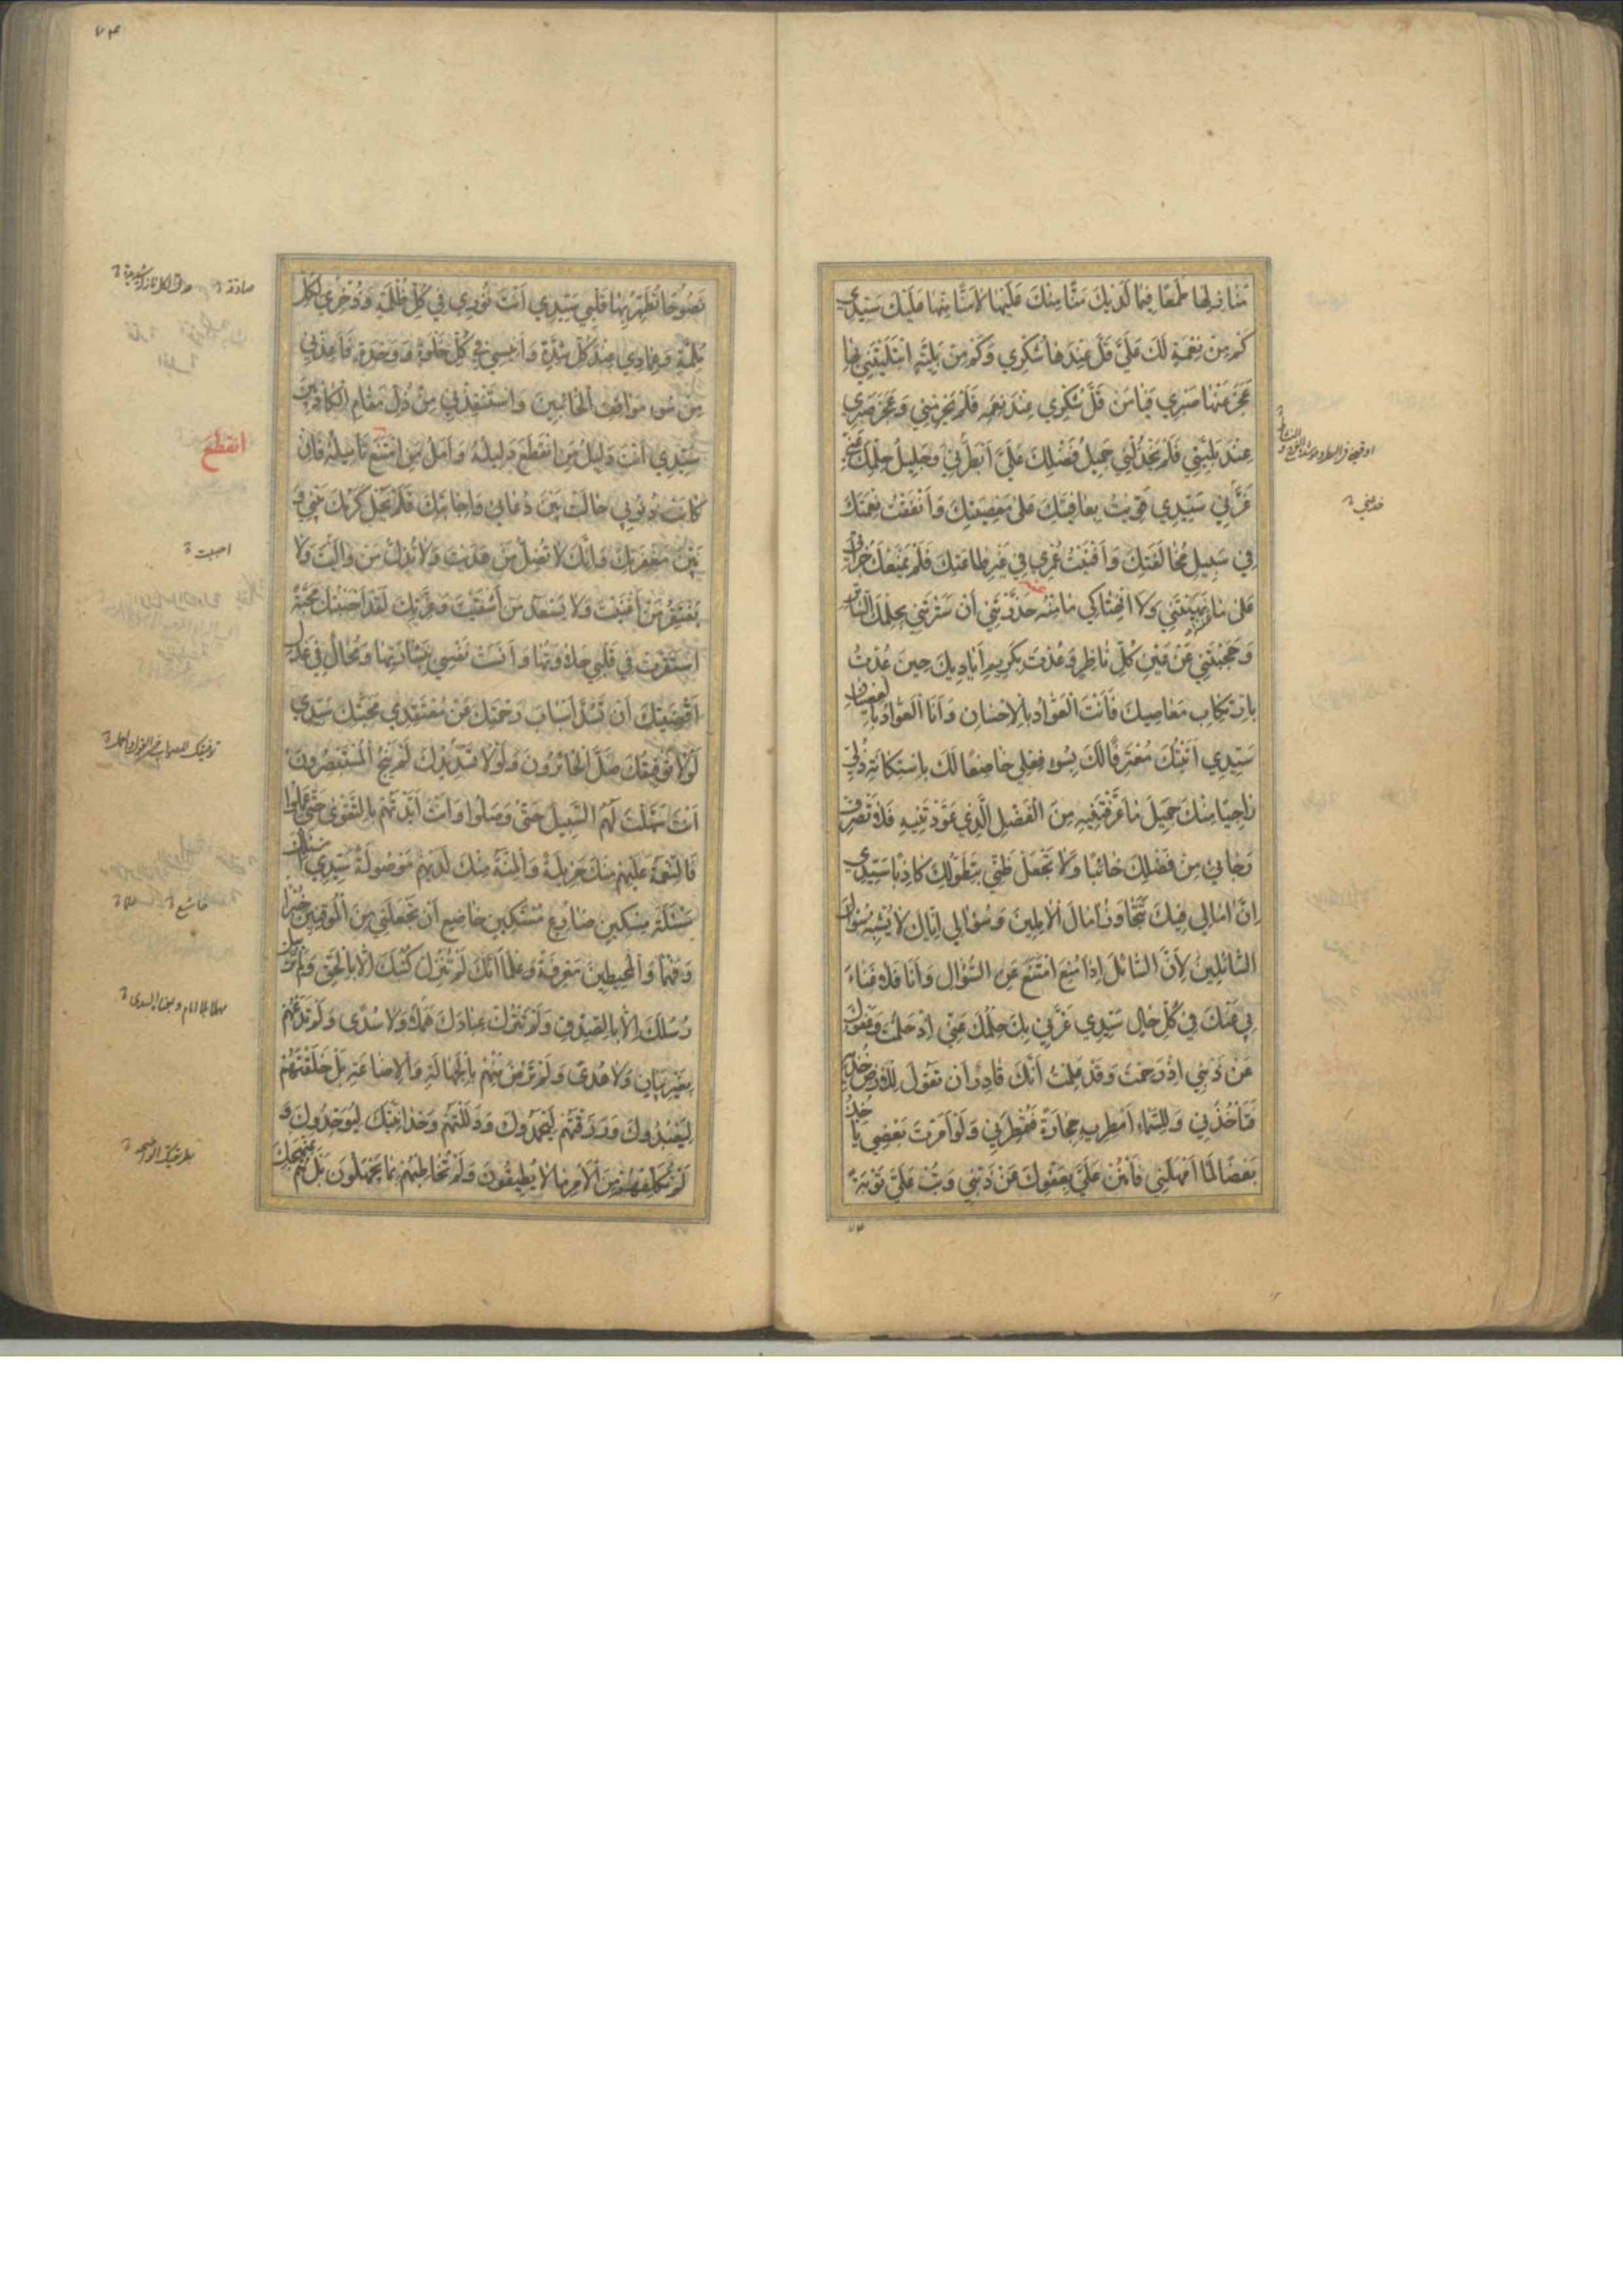 مَنَافِعِهَا طَمَعًا فِيمَا لَدَيْكَ مَنًّا مِنْكَ عَلَيْهَا لَا مَنًّا مِنْهَا عَلَيْكَ سَيِّدِي
كَمْ مِنْ نِعْمَةٍ لَكَ عَلَيَّ قَلَّ عِنْدَهَا شُكْرِي وَكَمْ مِنْ بَلِيَّةٍ ابْتَلَيْتَنِي بِهَا
عَجَزَ عَنْهَا صَبْرِي فَيَا مَنْ قَلَّ شُكْرِي عِنْدَ نِعَمِهِ فَلَمْ يَحْرِمْنِي وَعَجَزَ صَبْرِي
عِنْدَ بَلِيَّتِي فَلَمْ يَخْذُلْنِي جَمِيلُ فَضْلِكَ عَلَيَّ أَبْطَرَنِي وَجَلِيلُ حِلْمِكَ عَنِّي
غَرَّنِي سَيِّدِي قَوِيتُ بِعَافِيَتِكَ عَلَى مَعْصِيَتِكَ وَأَنْفَقْتُ نِعْمَتَكَ
فِي سَبِيلِ مُخَالَفَتِكَ وَأَفْنَيْتُ عُمْرِي فِي غَيْرِ طَاعَتِكَ فَلَمْ يَمْنَعْكَ جُرْأَتِي
عَلَى مَا نَهَيْتَنِي وَلَا انْتِهَاكِي مَا مِنْهُ حَذَّرْتَنِي أَنْ سَتَرْتَنِي بِحِلْمِكَ السَّاتِرِ
وَحَجَبْتَنِي عَنْ عَيْنِ كُلِّ نَاظِرٍ وَعُدْتَ بِكَرِيمِ أَيَادِيكَ حِينَ عُدْتُ
بِارْتِكَابِ مَعَاصِيكَ فَأَنْتَ الْعَوَّادُ بِالْإِحْسَانِ وَأَنَا الْعَوَّادُ بِالْعِصْيَانِ
سَيِّدِي أَتَيْتُكَ مُعْتَرِفًا لَكَ بِسُوءِ فِعْلِي خَاضِعًا لَكَ بِاسْتِكَانَةِ ذُلِّي
رَاجِيًا مِنْكَ جَمِيلَ مَا عَرَّفْتَنِيهِ مِنَ الْفَضْلِ الَّذِي عَوَّدْتَنِيهِ فَلَا تَصْرِفْ
رَجَائِي مِنْ فَضْلِكَ خَائِبًا وَلَا تَجْعَلْ ظَنِّي بِتَطَوُّلِكَ كَاذِبًا سَيِّدِي
إِنَّ آمَالِي فِيكَ تَتَجَاوَزُ آمَالَ الْآمِلِينَ وَسُؤَالِي إِيَّاكَ لَا يُشْبِهُ سُؤَالَ
السَّائِلِينَ لِأَنَّ السَّائِلَ إِذَا مُنِعَ امْتَنَعَ عَنِ السُّؤَالِ وَأَنَا فَلَا غَنَاءَ
بِي عَنْكَ فِي كُلِّ حَالٍ سَيِّدِي غَرَّنِي بِكَ حِلْمُكَ عَنِّي إِذْ حَلُمْتَ وَعَفْوُكَ
عَنْ ذَنْبِي إِذْ رَحِمْتَ وَقَدْ عَلِمْتُ أَنَّكَ قَادِرٌ أَنْ تَقُولَ لِلْأَرْضِ خُذِيهِ
فَتَأْخُذَنِي وَلِلسَّمَاءِ أَمْطِرِيهِ حِجَارَةً فَتُمْطِرَنِي وَلَوْ أَمَرْتَ بَعْضِي يَأْخُذُ
بَعْضًا لَمَا أَمْهَلَنِي فَامْنُنْ عَلَيَّ بِعَفْوِكَ عَنْ ذَنْبِي وَتُبْ عَلَيَّ تَوْبَةً
٧٣
٧٤
نَصُوحًا تُطَهِّرُ بِهَا قَلْبِي سَيِّدِي أَنْتَ نُورِي فِي كُلِّ ظُلْمَةٍ وَذُخْرِي لِكُلِّ
مُلِمَّةٍ وَعِمَادِي عِنْدَ كُلِّ شِدَّةٍ وَأَنِيسِي فِي كُلِّ خَلْوَةٍ وَوَحْدَةٍ فَأَعِذْنِي
مِنْ سُوءِ مَوَاقِفِ الْخَائِنِينَ وَاسْتَنْقِذْنِي مِنْ ذُلِّ مَقَامِ الْكَاذِبِينَ
سَيِّدِي أَنْتَ دَلِيلُ مَنِ انْقَطَعَ دَلِيلُهُ وَأَمَلُ مَنِ امْتَنَعَ تَأْمِيلُهُ فَإِنْ
كَانَتْ ذُنُوبِي حَالَتْ بَيْنَ دُعَائِي وَإِجَابَتِكَ فَلَمْ يَحُلْ كَرَمُكَ بَيْنِي وَ
بَيْنَ مَغْفِرَتِكَ وَإِنَّكَ لَا تُضِلُّ مَنْ هَدَيْتَ وَلَا تُذِلُّ مَنْ وَالَيْتَ وَلَا
يَفْتَقِرُ مَنْ أَغْنَيْتَ وَلَا يَسْعَدُ مَنْ أَشْقَيْتَ وَعِزَّتِكَ لَقَدْ أَحْبَبْتُكَ مَحَبَّةً
اسْتَقَرَّتْ فِي قَلْبِي حَلَاوَتُهَا وَأَنِسَتْ نَفْسِي بِبِشَارَتِهَا وَمُحَالٌ فِي عَدْلِ
أَقْضِيَتِكَ أَنْ تَسُدَّ أَسْبَابَ رَحْمَتِكَ عَنْ مُعْتَقِدِي مَحَبَّتِكَ سَيِّدِي
لَوْلَا تَوْفِيقُكَ ضَلَّ الْحَائِرُونَ وَلَوْلَا تَسْدِيدُكَ لَمْ يَنْجُ الْمُسْتَبْصِرُونَ
أَنْتَ سَهَّلْتَ لَهُمُ السَّبِيلَ حَتَّى وَصَلُوا وَأَنْتَ أَيَّدْتَهُمْ بِالتَّقْوَى حَتَّى عَمِلُوا
فَالنِّعْمَةُ عَلَيْهِمْ مِنْكَ جَزِيلَةٌ وَالْمِنَّةُ مِنْكَ لَدَيْهِمْ مَوْصُولَةٌ سَيِّدِي أَسْأَلُكَ
مَسْئَلَةَ مِسْكِينٍ ضَارِعٍ مُسْتَكِينٍ خَاضِعٍ أَنْ تَجْعَلَنِي مِنَ الْمُوقِنِينَ خُبْرًا
وَفَهْمًا وَالْمُحِيطِينَ مَعْرِفَةً وَعِلْمًا إِنَّكَ لَمْ تُنْزِلْ كُتُبَكَ إِلَّا بِالْحَقِّ وَلَمْ تُرْسِلْ
رُسُلَكَ إِلَّا بِالصِّدْقِ وَلَمْ تَتْرُكْ عِبَادَكَ هَمَلًا وَلَا سُدًى وَلَمْ تَدَعْهُمْ
بِغَيْرِ بَيَانٍ وَلَا هُدًى وَلَمْ تَرْضَ مِنْهُمْ بِالْجَهَالَةِ وَالْإِضَاعَةِ بَلْ خَلَقْتَهُمْ
لِيَعْبُدُوكَ وَرَزَقْتَهُمْ لِيَحْمَدُوكَ وَدَلَلْتَهُمْ وَحْدَانِيَّتِكَ لِيُوَحِّدُوكَ وَ
لَمْ تُكَلِّفْهُمْ مِنَ الْأَمْرِ مَا لَا يُطِيقُونَ وَلَمْ تُخَاطِبْهُمْ بِمَا يَجْهَلُونَ بَلْ هُمْ بِمَنْهَجِكَ
صادقة
انقطع
احببت
خاشع